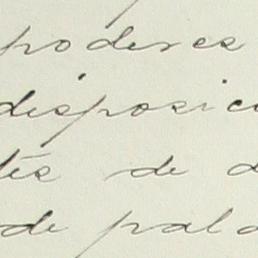 poderes
disposici
tés de d
de pala